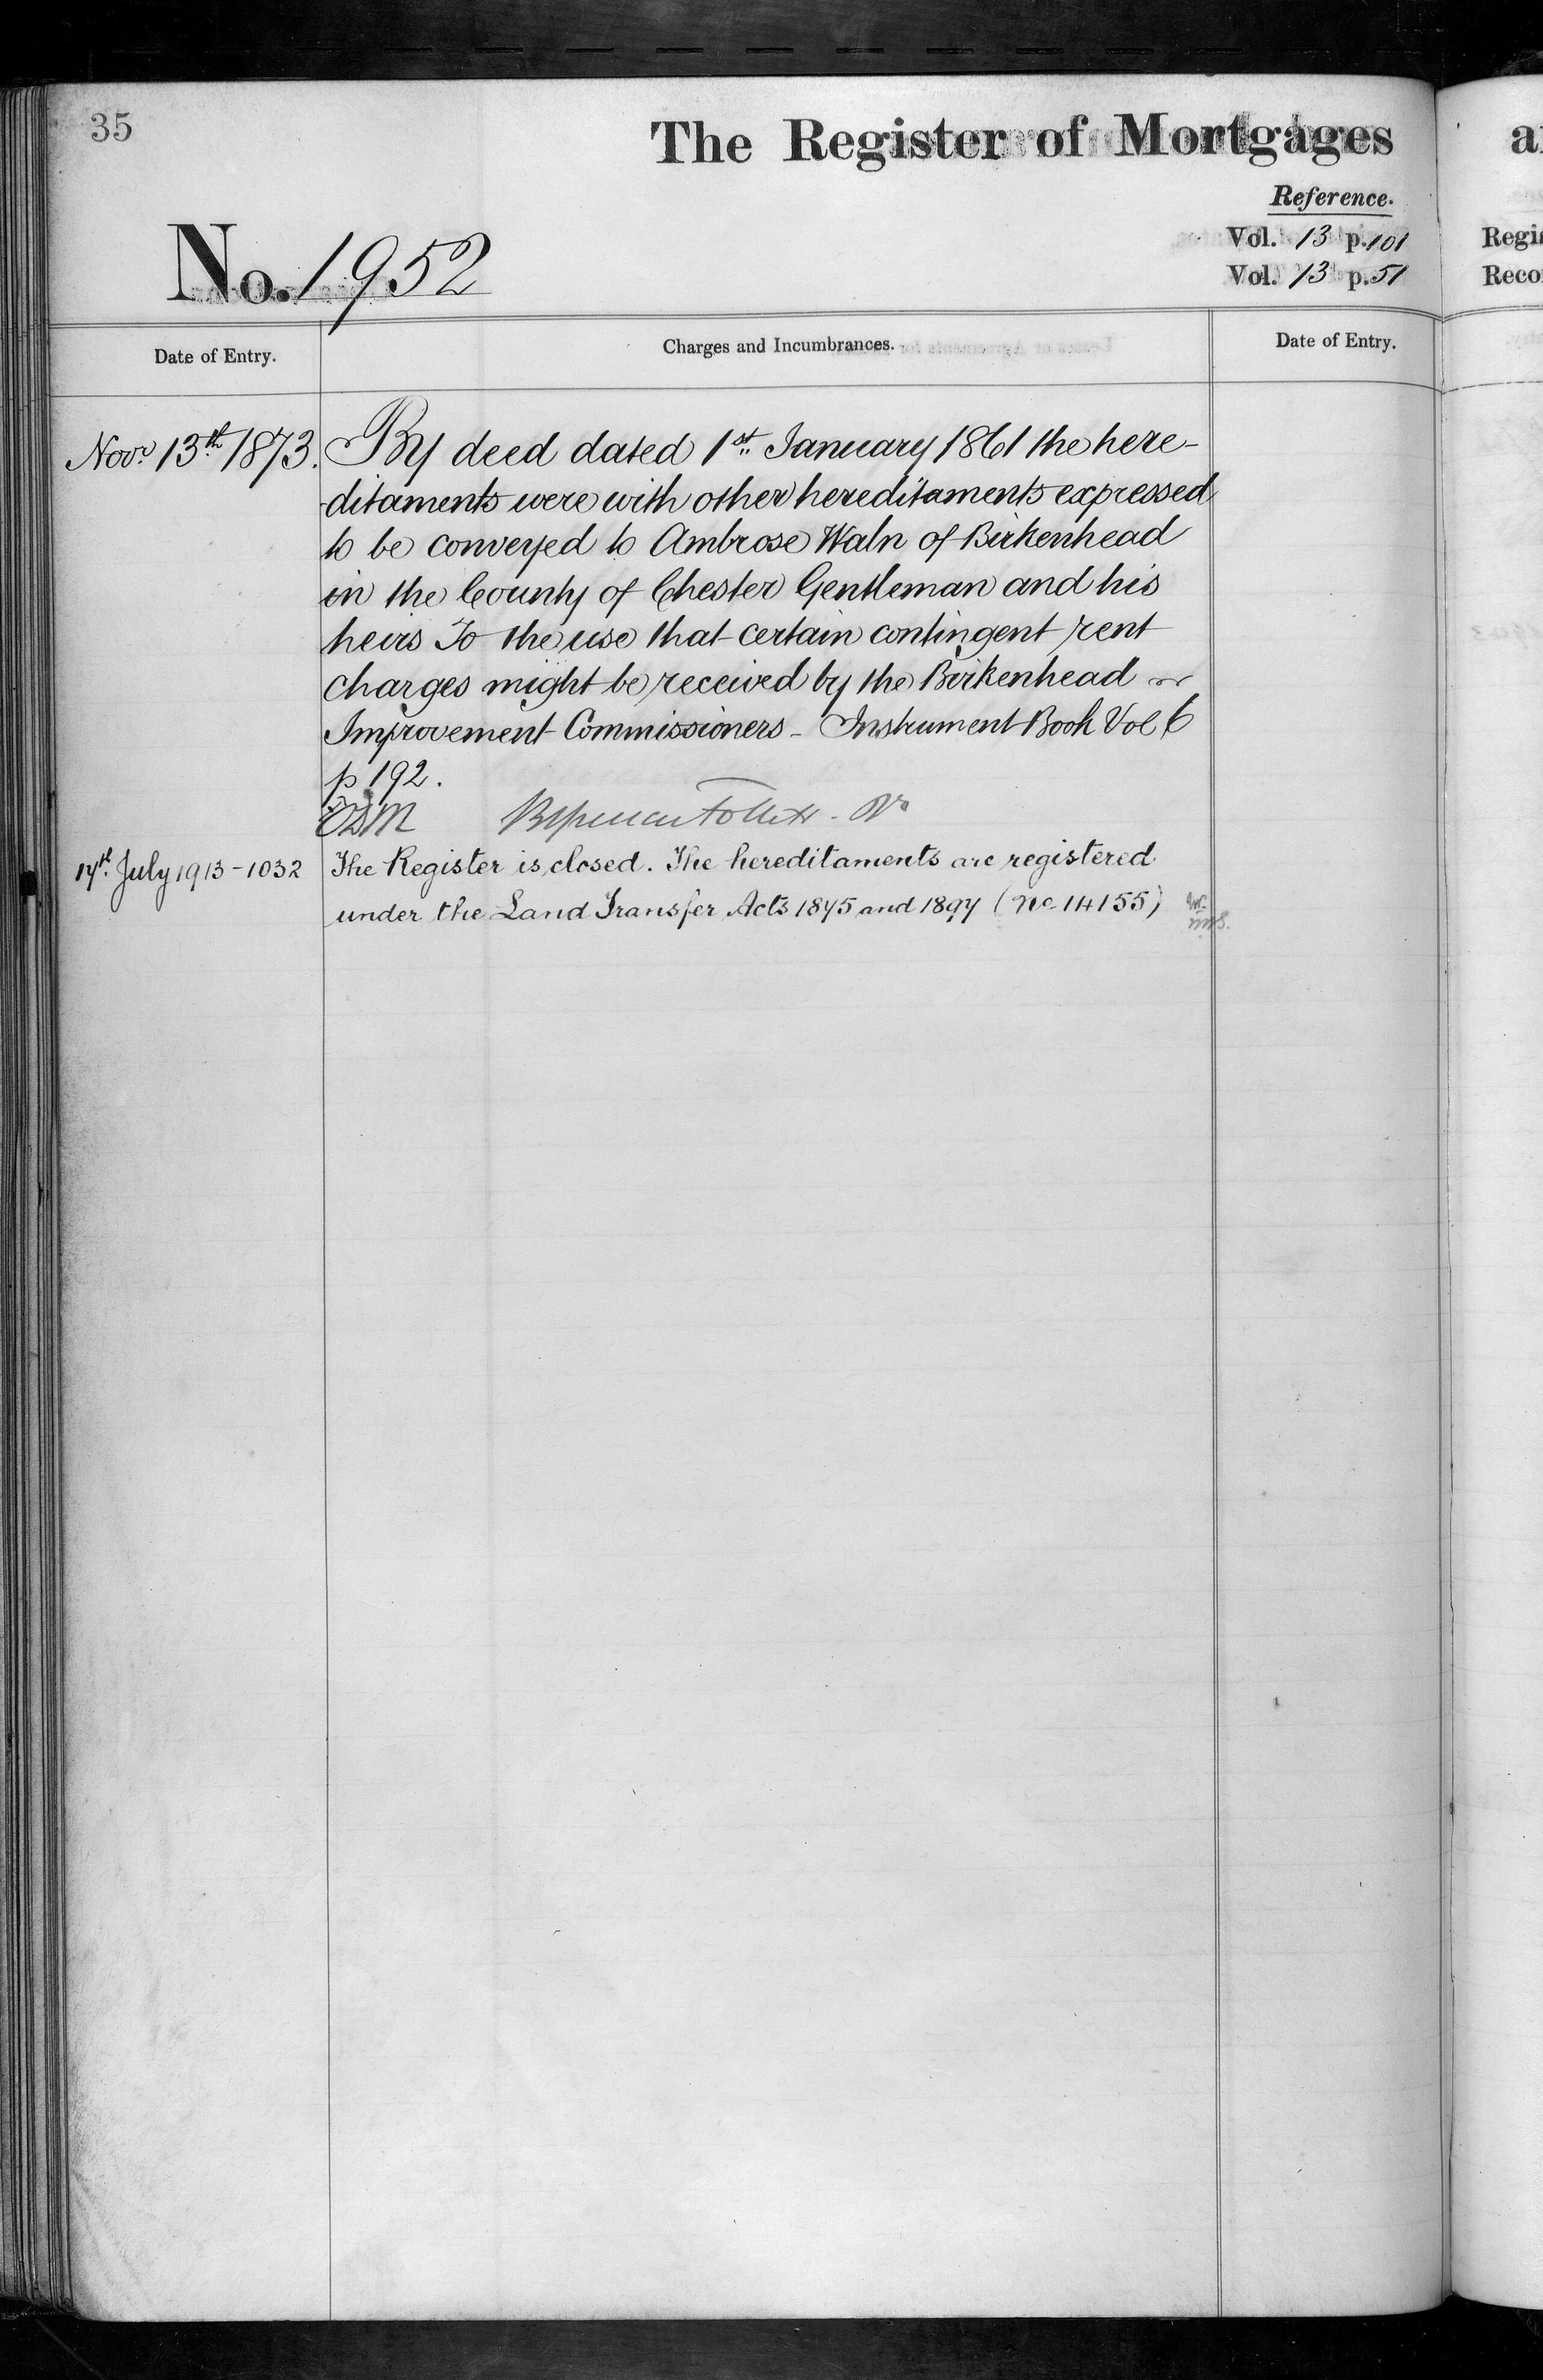 35
The Register of Mortgages
Reference.
Vol. 13 p. 101
No. 1952
Vol. 13 p. 51
Date of Entry.
Charges and Incumbrances.
Date of Entry.
Novr. 13th 1873.
By deed dated 1st January 1861 the here-
ditaments were with other hereditaments expressed
to be conveyed to Ambrose Waln of Birkenhead
in the County of Chester Gentleman and his
heirs To the use that certain contingent rent
charges might be received by the Birkenhead
Improvement Commissioners - Instrument Book Vol 6
p 192.
17th. July 1913 - 1032
The Register is closed. The hereditaments are registered
under the Land Transfer Acts 1875 and 1897 (No. 14155)
a
Regis
Reco